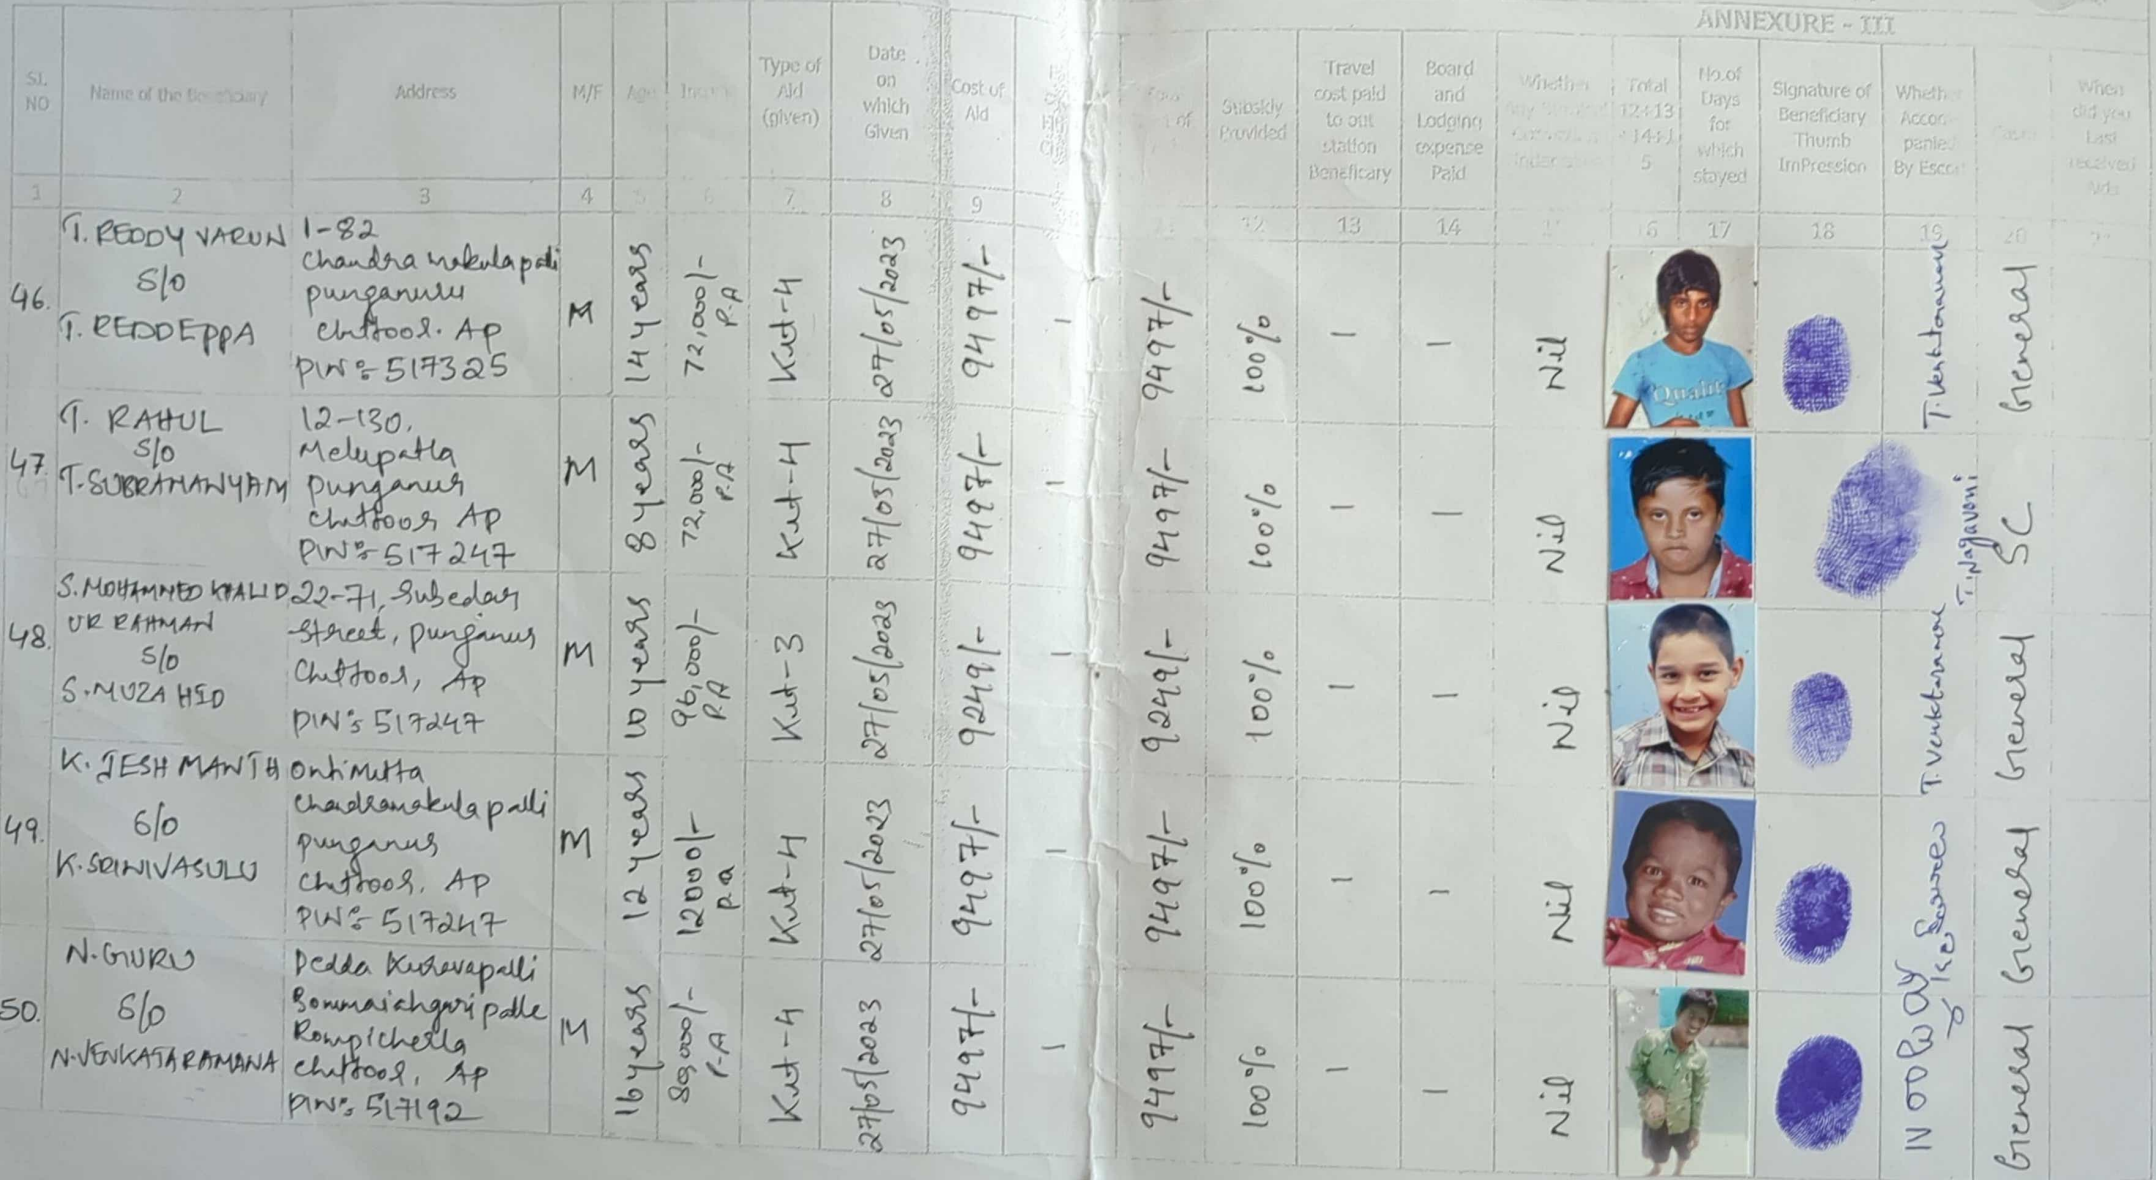 ANNEXURE - III
SL. NO
Name of the Beneficiary
Address
M/F
Age
Type of Aid (given)
Date on which Given
Cost of Aid
Subsidy Provided
Travel cost paid to out station Beneficary
Board and Lodging expense Paid
Whether
Total 12+13 +14+1 5
No.of Days for which stayed
Signature of Beneficiary Thumb ImPression
Whether Accom panied By Escort
When did you Last received Aids
1 2 3 4 5 6 7 8 9 12 13 14 16 17 18 19 20
46.
T. REDDY VARUN
S/O
T. REDDEPPA
1-82
Chandra makula palli
punganuru
Chittoor. AP
PIN: 517325
M
14 years
72,000/-
P.A
Kit-4
27/05/2023
9497/-
-
9497/-
100%
-
-
Nil
General
47.
T. RAHUL
S/O
T.SUBRAMANYAM
12-130,
Melupatla
punganur
Chittoor AP
PIN: 517247
M
8 years
72,000/-
P.A
Kit-4
27/05/2023
9497/-
-
9497/-
100%
-
-
Nil
T.Nagaveni
SC
48.
S.MOHAMMED KHALID
UR RAHMAN
S/O
S.MUZAHID
22-71, Subedar
Street, punganur
Chittoor, AP
PIN: 517247
M
10 years
96,000/-
P.A
Kit-3
27/05/2023
9249/-
-
9249/-
100%
-
-
Nil
General
49.
K. JESHMANTH
S/O
K.SRINIVASULU
Ontimitta
Chadramakulapalli
punganur
Chittoor, AP
PIN: 517247
M
12 years
12000/-
P.a
Kit-4
27/05/2023
9497/-
-
9497/-
100%
-
-
Nil
General
50.
N.GURU
S/O
N.VENKATARAMANA
Pedda Kuravapalli
Bommaiahgari palle
Rompicherla
Chittoor, AP
PIN: 517192
M
16 years
80,000/-
P.A
Kit-4
27/05/2023
9497/-
-
9497/-
100%
-
-
Nil
General